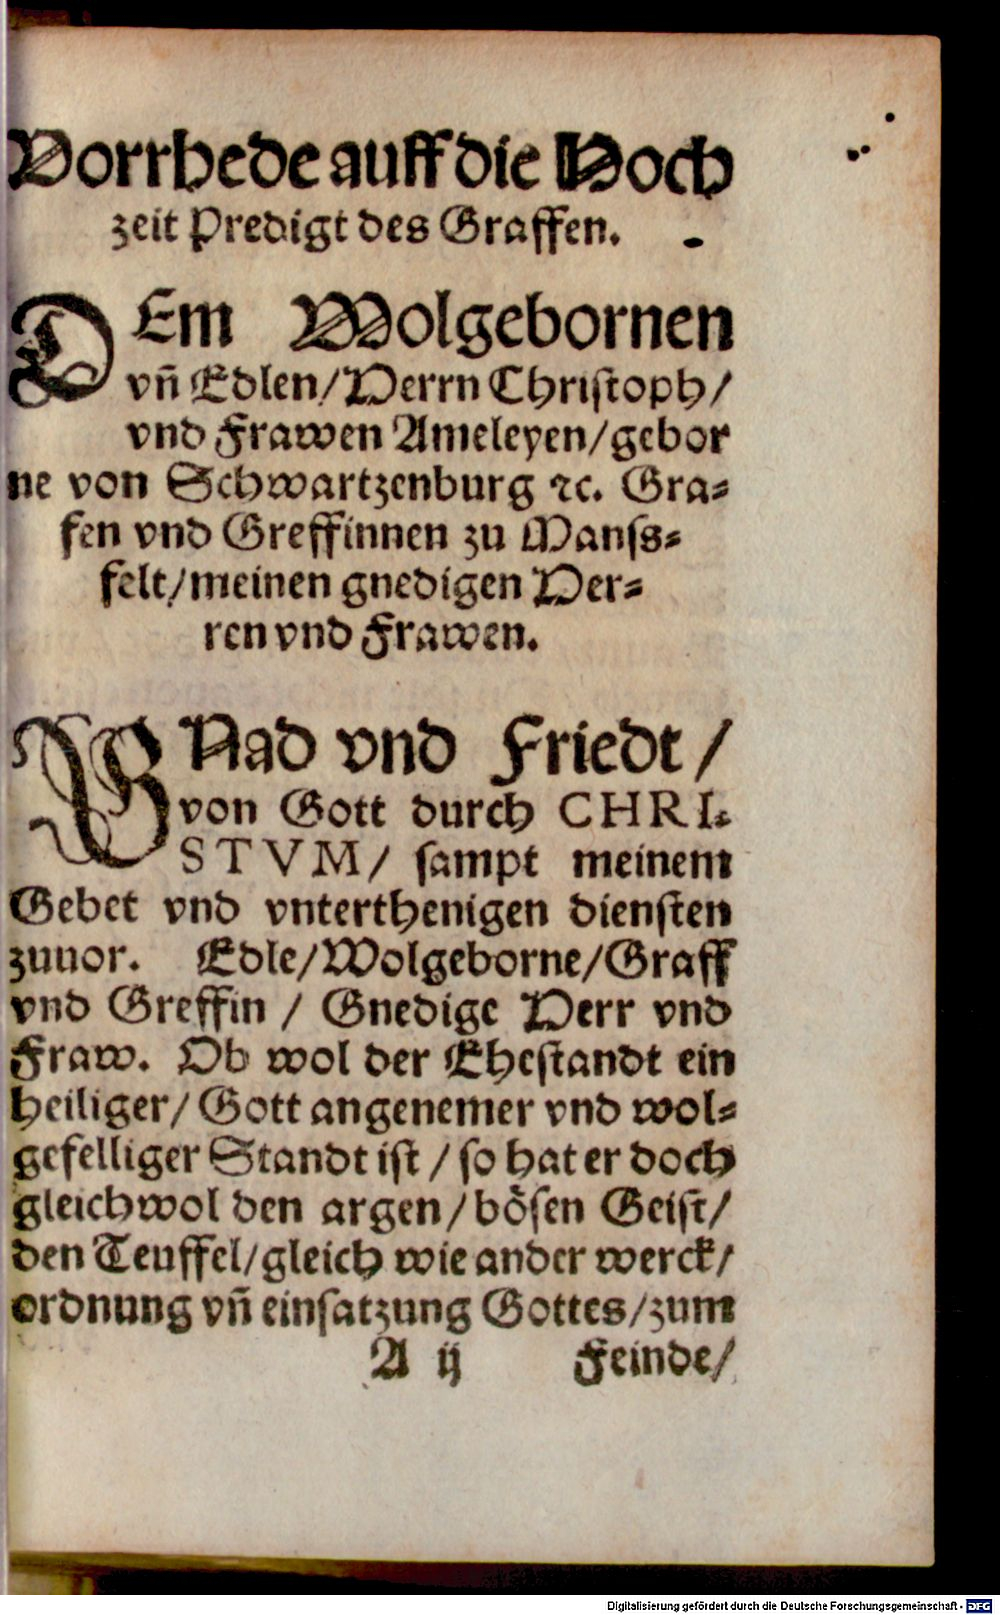 Vorrhede auff die Hoch
zeit Predigt des Graffen.
DEm Wolgebornen
vn̄ Edlen/Herrn Christoph/
vnd Frawen Ameleyen/gebor
ne von Schwartzenburg ꝛc. Gra⸗
fen vnd Greffinnen zu Manſs⸗
felt/meinen gnedigen Her⸗
ren vnd Frawen.
GNad vnd Friedt/
von Gott durch CHRI⸗
STVM/ ſampt meinem
Gebet vnd vnterthenigen dienſten
zuuor. Edle/Wolgeborne/Graff
vnd Greffin / Gnedige Herr vnd
Fraw. Ob wol der Eheſtandt ein
heiliger/ Gott angenemer vnd wol⸗
gefelliger Standt iſt / ſo hat er doch
gleichwol den argen/ böſen Geiſt/
den Teuffel/gleich wie ander werck/
ordnung vn̄ einſatzung Gottes/zum
A ij Feinde/
Digitalisierung gefördert durch die Deutsche Forschungsgemeinschaft - DFG